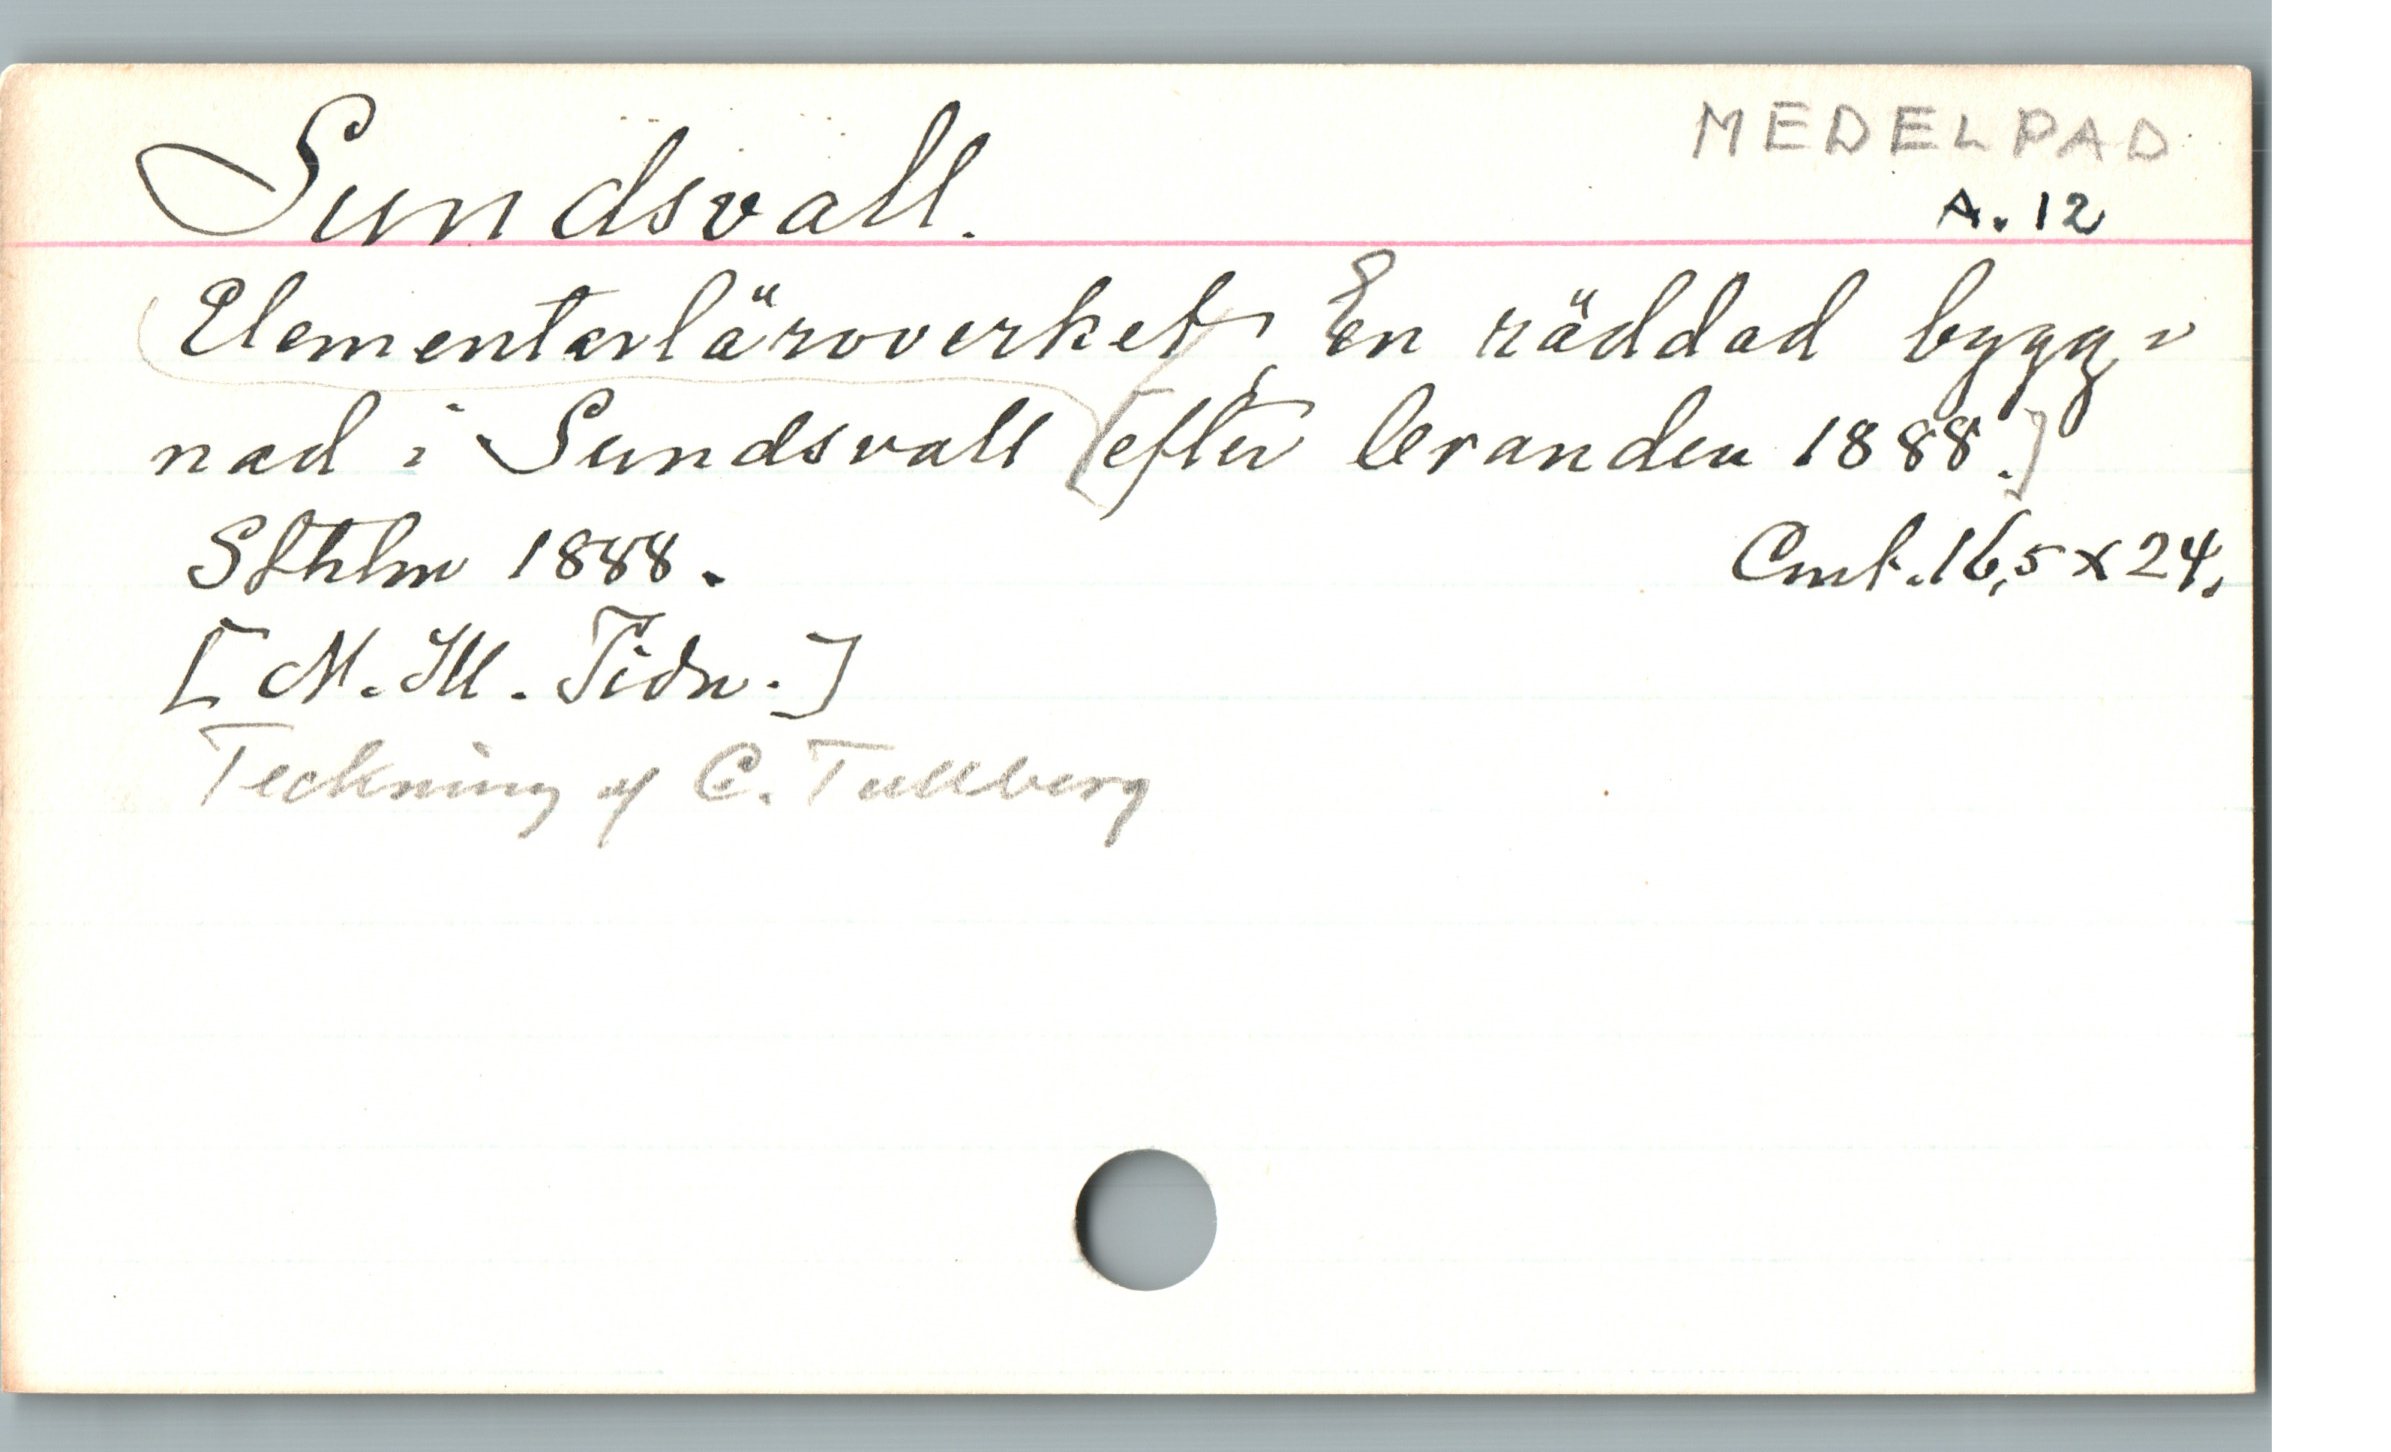 MEDELPAD
Sundsvall.
A. 12
Elementarläroverket, En räddad bygg-
nad i Sundsvall [efter branden 1888.]
Sthlm 1888. Cmt. 16,5 x 24.
[N. Ill. Tidn.]
Teckning af C. Tullberg